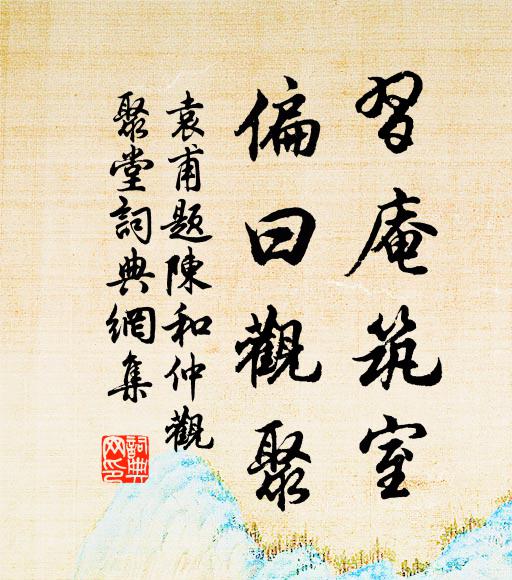 習庵筑室
偏曰觀聚
袁甫題陳和仲觀
聚堂詞典網集
詞典
网印